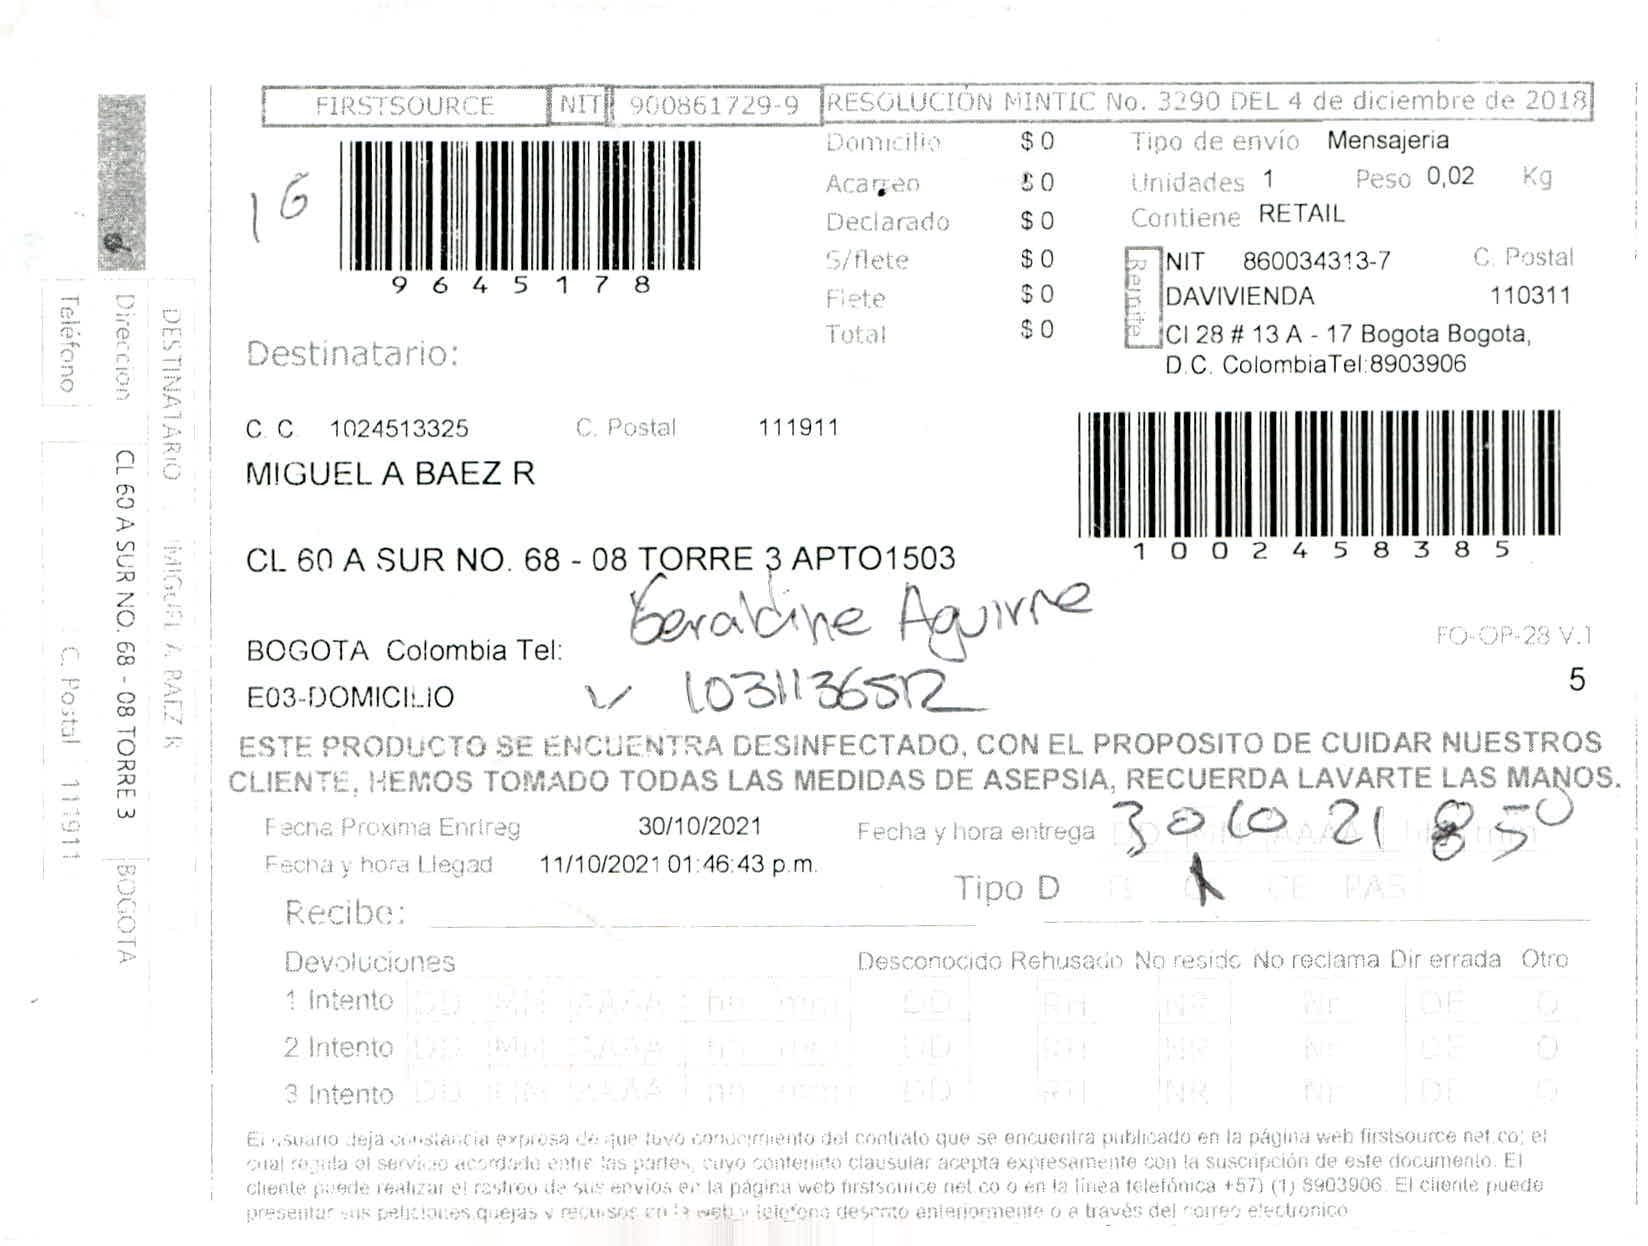 FIRSTSOURCE NIT 900861729-9 RESOLUCIÓN MINTIC No. 3290 DEL 4 de diciembre de 2018
16
9645178
Domicilio $ 0
Acarreo $ 0
Declarado $ 0
S/flete $ 0
Flete $ 0
Total $ 0
Tipo de envío Mensajeria
Unidades 1 Peso 0,02 Kg
Contiene RETAIL
Remite
NIT 860034313-7 C. Postal
DAVIVIENDA 110311
Cl 28 # 13 A - 17 Bogota Bogota,
D.C. ColombiaTel:8903906
Destinatario:
C. C. 1024513325 C. Postal 111911
MIGUEL A BAEZ R
1002458385
CL 60 A SUR NO. 68 - 08 TORRE 3 APTO1503
Geraldine Aguirre
BOGOTA Colombia Tel:
FO-OP-28 V.1
E03-DOMICILIO
1031136512
5
ESTE PRODUCTO SE ENCUENTRA DESINFECTADO, CON EL PROPOSITO DE CUIDAR NUESTROS
CLIENTE, HEMOS TOMADO TODAS LAS MEDIDAS DE ASEPSIA, RECUERDA LAVARTE LAS MANOS.
Fecha Proxima Entreg 30/10/2021 Fecha y hora entrega 30 10 21 850
Fecha y hora Llegad 11/10/2021 01:46:43 p.m.
Tipo D CE PAS
Recibe:
Devoluciones Desconocido Rehusado No reside No reclama Dir errada Otro
1 Intento DD MM AAAA hh mm DD RH NR Nr DE O
2 Intento DD MM AAAA hh mm DD RH NR Nr DE O
3 Intento DD MM AAAA hh mm DD RH NR Nr DE O
El usuario deja constancia expresa de que tuvo conocimiento del contrato que se encuentra publicado en la página web firstsource.net.co; el
cual regula el servicio acordado entre las partes, cuyo contenido clausular acepta expresamente con la suscripción de este documento. El
cliente puede realizar el rastreo de sus envios en la página web firstsource.net.co o en la línea telefónica +57) (1) 8903906. El cliente puede
presentar sus peticiones,quejas y recursos en la web y telefono descrito anteriormente o a través del correo electronico
DESTINATARIO MIGUEL A BAEZ R
Direccion CL 60 A SUR NO. 68 - 08 TORRE 3 BOGOTA
Teléfono C. Postal 111911